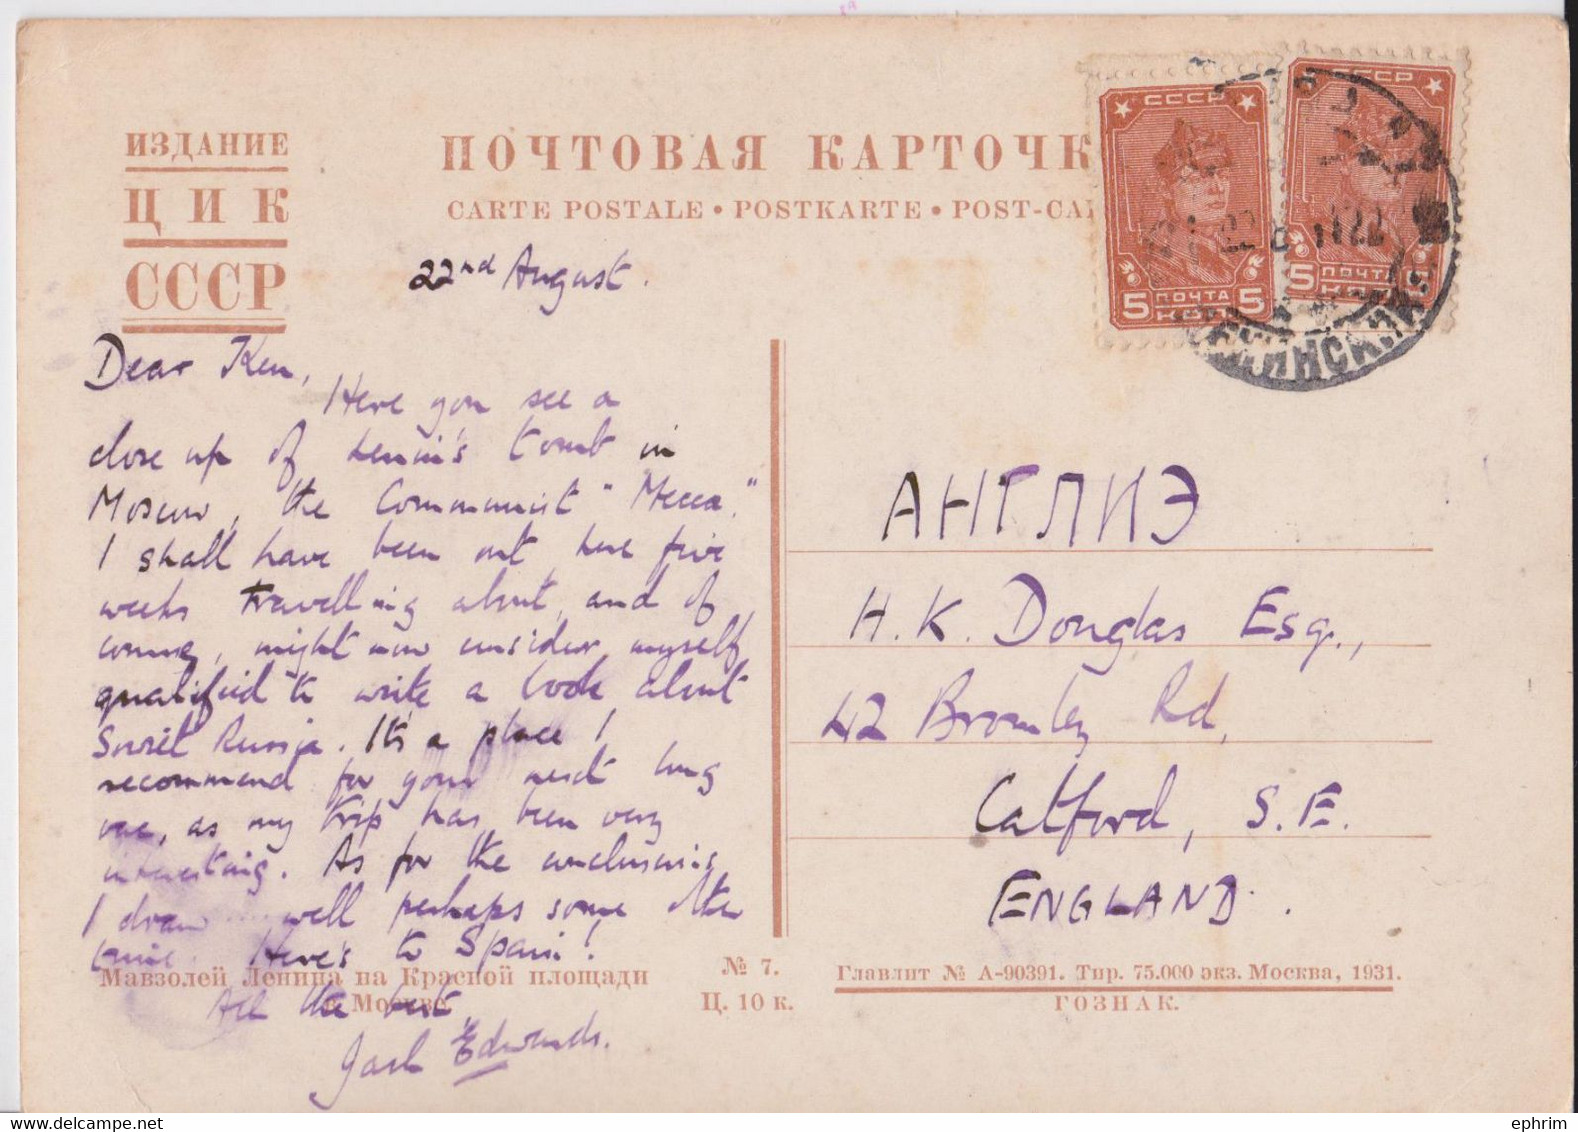 ИЗДАНИЕ
ЦИК
СССР
ПОЧТОВАЯ КАРТОЧК
CARTE POSTALE • POSTKARTE • POST-CA
СССР
5 ПОЧТА 5
КОП
СССР
5 ПОЧТА
КОП
22nd August.
Dear Ken,
Here you see a
close up of Lenin's tomb in
Moscow, the Communist "Mecca."
I shall have been out here five
weeks travelling about, and of
course, might now consider myself
qualified to write a book about
Soviet Russia. It's a place I
recommend for your next long
vac, as my trip has been very
interesting. As for the conclusions
I draw ... well perhaps some other
time. Here's to Spain!
All the best,
Jack Edwards.
АНГЛИЭ
H. K. Douglas Esq.,
42 Bromley Rd,
Catford, S.E.
ENGLAND.
Мавзолей Ленина на Красной площади
в Москве
№ 7.
Ц. 10 к.
Главлит № А-90391. Тир. 75.000 экз. Москва, 1931.
ГОЗНАК.
delcampe.net
ephrim